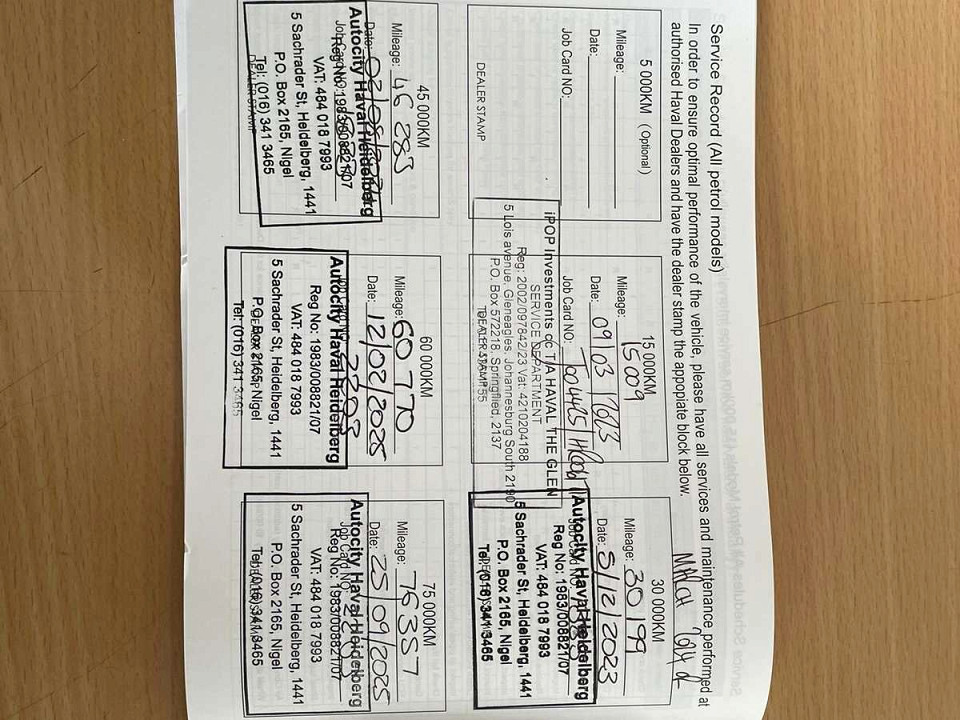 Service Record (All petrol models)
In order to ensure optimal performance of the vehicle, please have all services and maintenance performed at
authorised Haval Dealers and have the dealer stamp the appopiate block below.
5 000KM (Optional)
Mileage:
Date:
Job Card NO:
DEALER STAMP
15 000KM
Mileage: 15009
Date: 09/03/2023
Job Card NO:
iPOP Investments cc T/A HAVAL THE GLEN
SERVICE DEPARTMENT
Reg: 2002/097842/23 Vat: 4210204188
5 Lois avenue, Gleneagles, Johannesburg South 2190
P.O. Box 572218, Springfield, 2137
DEALER STAMP
30 000KM
Mileage: 30 199
Date: 5/12/2023
Autocity Haval Heidelberg
Reg No: 1983/008821/07
VAT: 484 018 7993
5 Sachrader St, Heidelberg, 1441
P.O. Box 2165, Nigel
Tel: (016) 341 3465
45 000KM
Mileage: 46 283
Date:
Autocity Haval Heidelberg
Job Card NO:
Reg No: 1983/008821/07
VAT: 484 018 7993
5 Sachrader St, Heidelberg, 1441
P.O. Box 2165, Nigel
DEALER STAMP
Tel: (016) 341 3465
60 000KM
Mileage: 60 770
Date: 12/02/2025
Autocity Haval Heidelberg
Reg No: 1983/008821/07
VAT: 484 018 7993
5 Sachrader St, Heidelberg, 1441
P.O. Box 2165, Nigel
Tel: (016) 341 3465
75 000KM
Mileage: 76357
Date: 25/09/2025
Autocity Haval Heidelberg
Job Card NO:
Reg No: 1983/008821/07
VAT: 484 018 7993
5 Sachrader St, Heidelberg, 1441
P.O. Box 2165, Nigel
Tel: (016) 341 3465